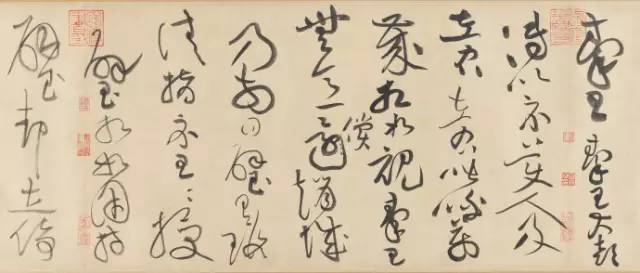 秦王秦王大喜
傳以示美人及
左右左右皆呼萬
歲相如視秦王
無意償趙城
乃前曰璧有瑕
請指示王王授
璧相如因持
璧却立倚